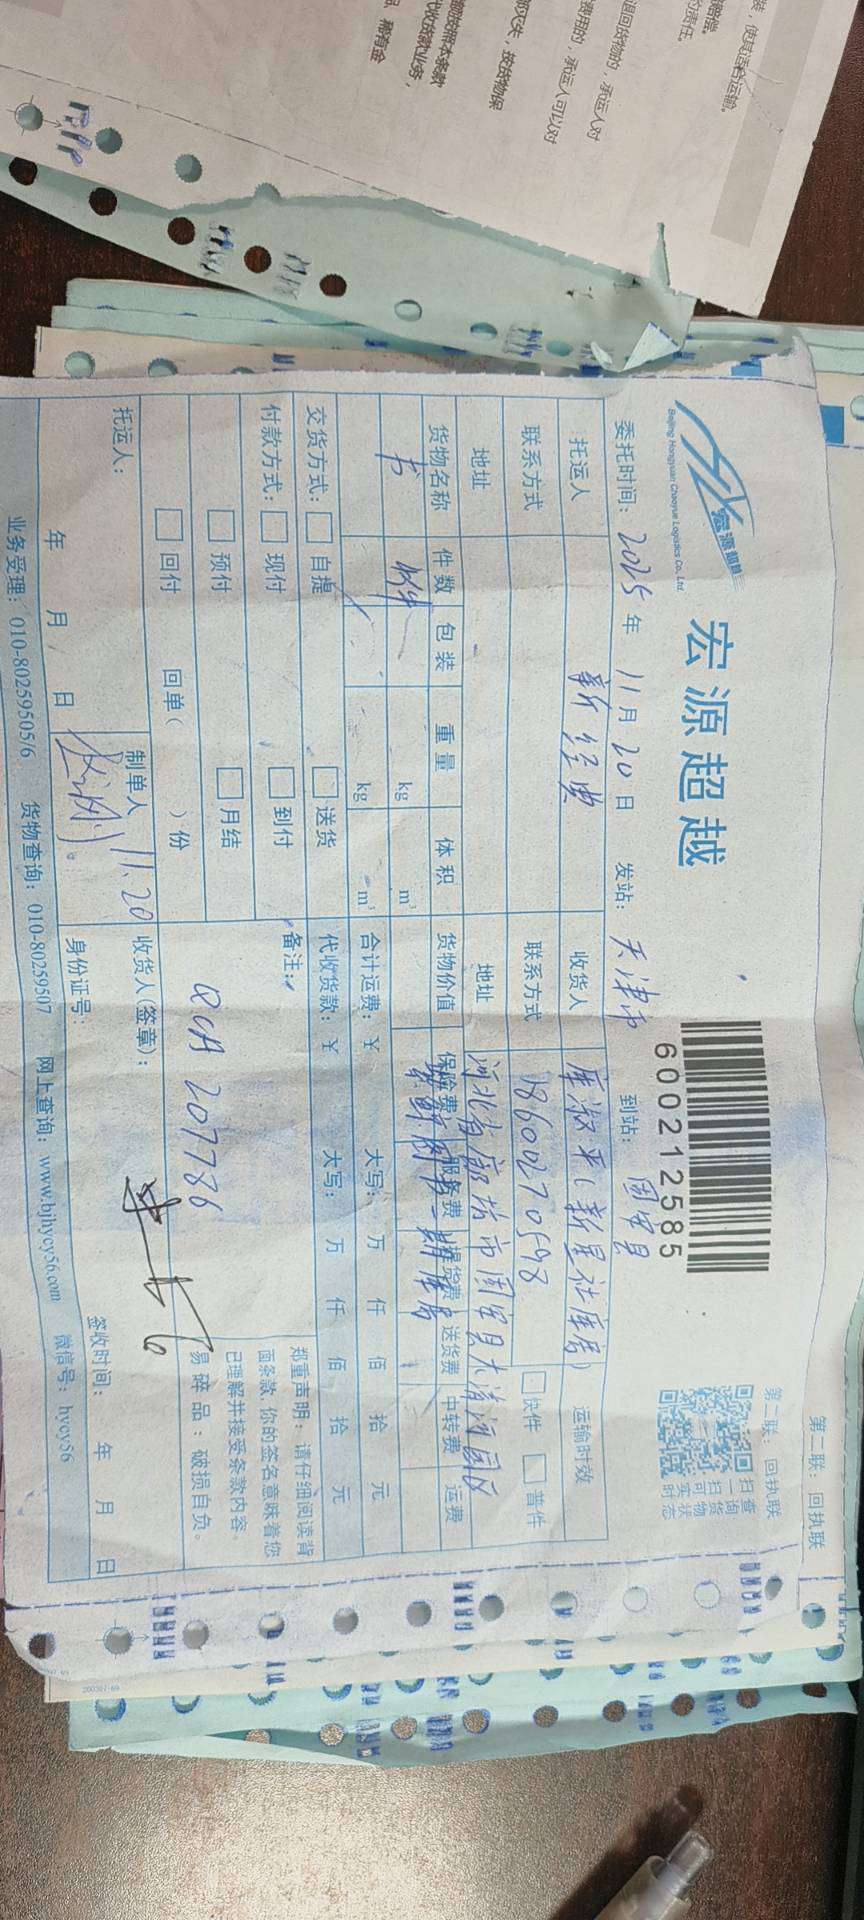 装，使其适合运输。
的责任。
退回货物的，承运人对
费用的，承运人可以对
第二联：回执联
第二联：回执联
宏源超越
宏源超越
Beijing Hongyuan Chaoyue Logistics Co., Ltd
600212585
扫一扫
查询货物
可实时状态
委托时间：2025年11月20日 发站：天津市 到站：固安县
托运人 新经典 收货人 库淑平(新星社库房) 运输时效
联系方式 联系方式 18600270598 快件 普件
地址 地址 河北省廊坊市固安县大清河园区
货物名称 件数 包装 重量 体积 货物价值 保险费 服务费 提货费 送货费 中转费 运费
书 件 kg m³
kg m³ 合计运费：¥ 大写： 万 仟 佰 拾 元
交货方式： 自提 送货 代收货款：¥ 大写： 万 仟 佰 拾 元
付款方式： 现付 到付 备注：
预付 月结
QCA 207786
回付 回单（ ）份
郑重声明：请仔细阅读背
面条款，你的签名意味着您
已理解并接受条款内容。
易碎品：破损自负。
托运人： 制单人 11.20 收货人(签章)：
年 月 日 身份证号： 签收时间： 年 月 日
业务受理：010-80259505/6 货物查询：010-80259507 网上查询：www.bjhycy56.com 微信号：hycy56